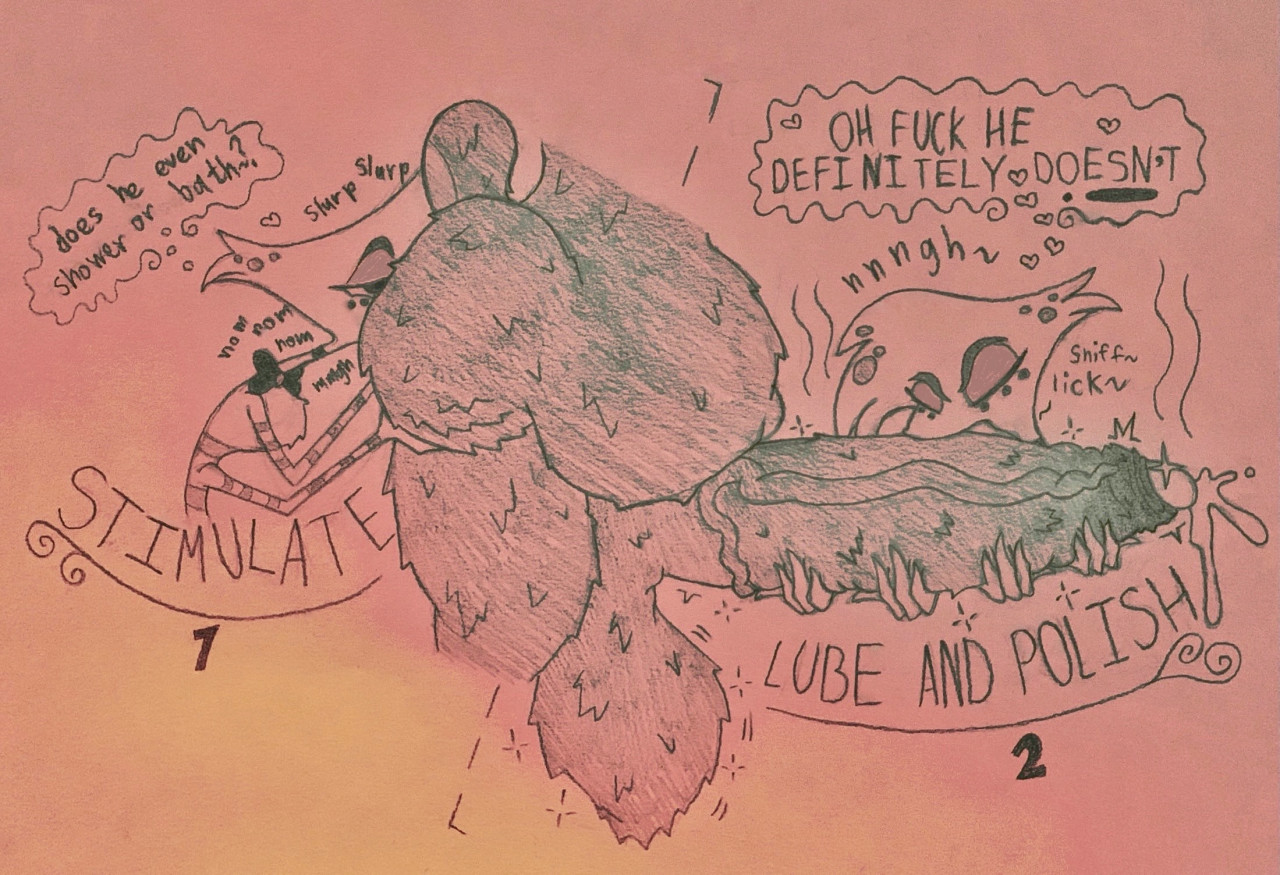 does he even
shower or bath~?
slurp slurp
nom nom nom
mmgh
STIMULATE
1
OH FUCK HE
DEFINITELY DOESN'T
nnngh~
Sniff~
lick~
M
LUBE AND POLISH
2